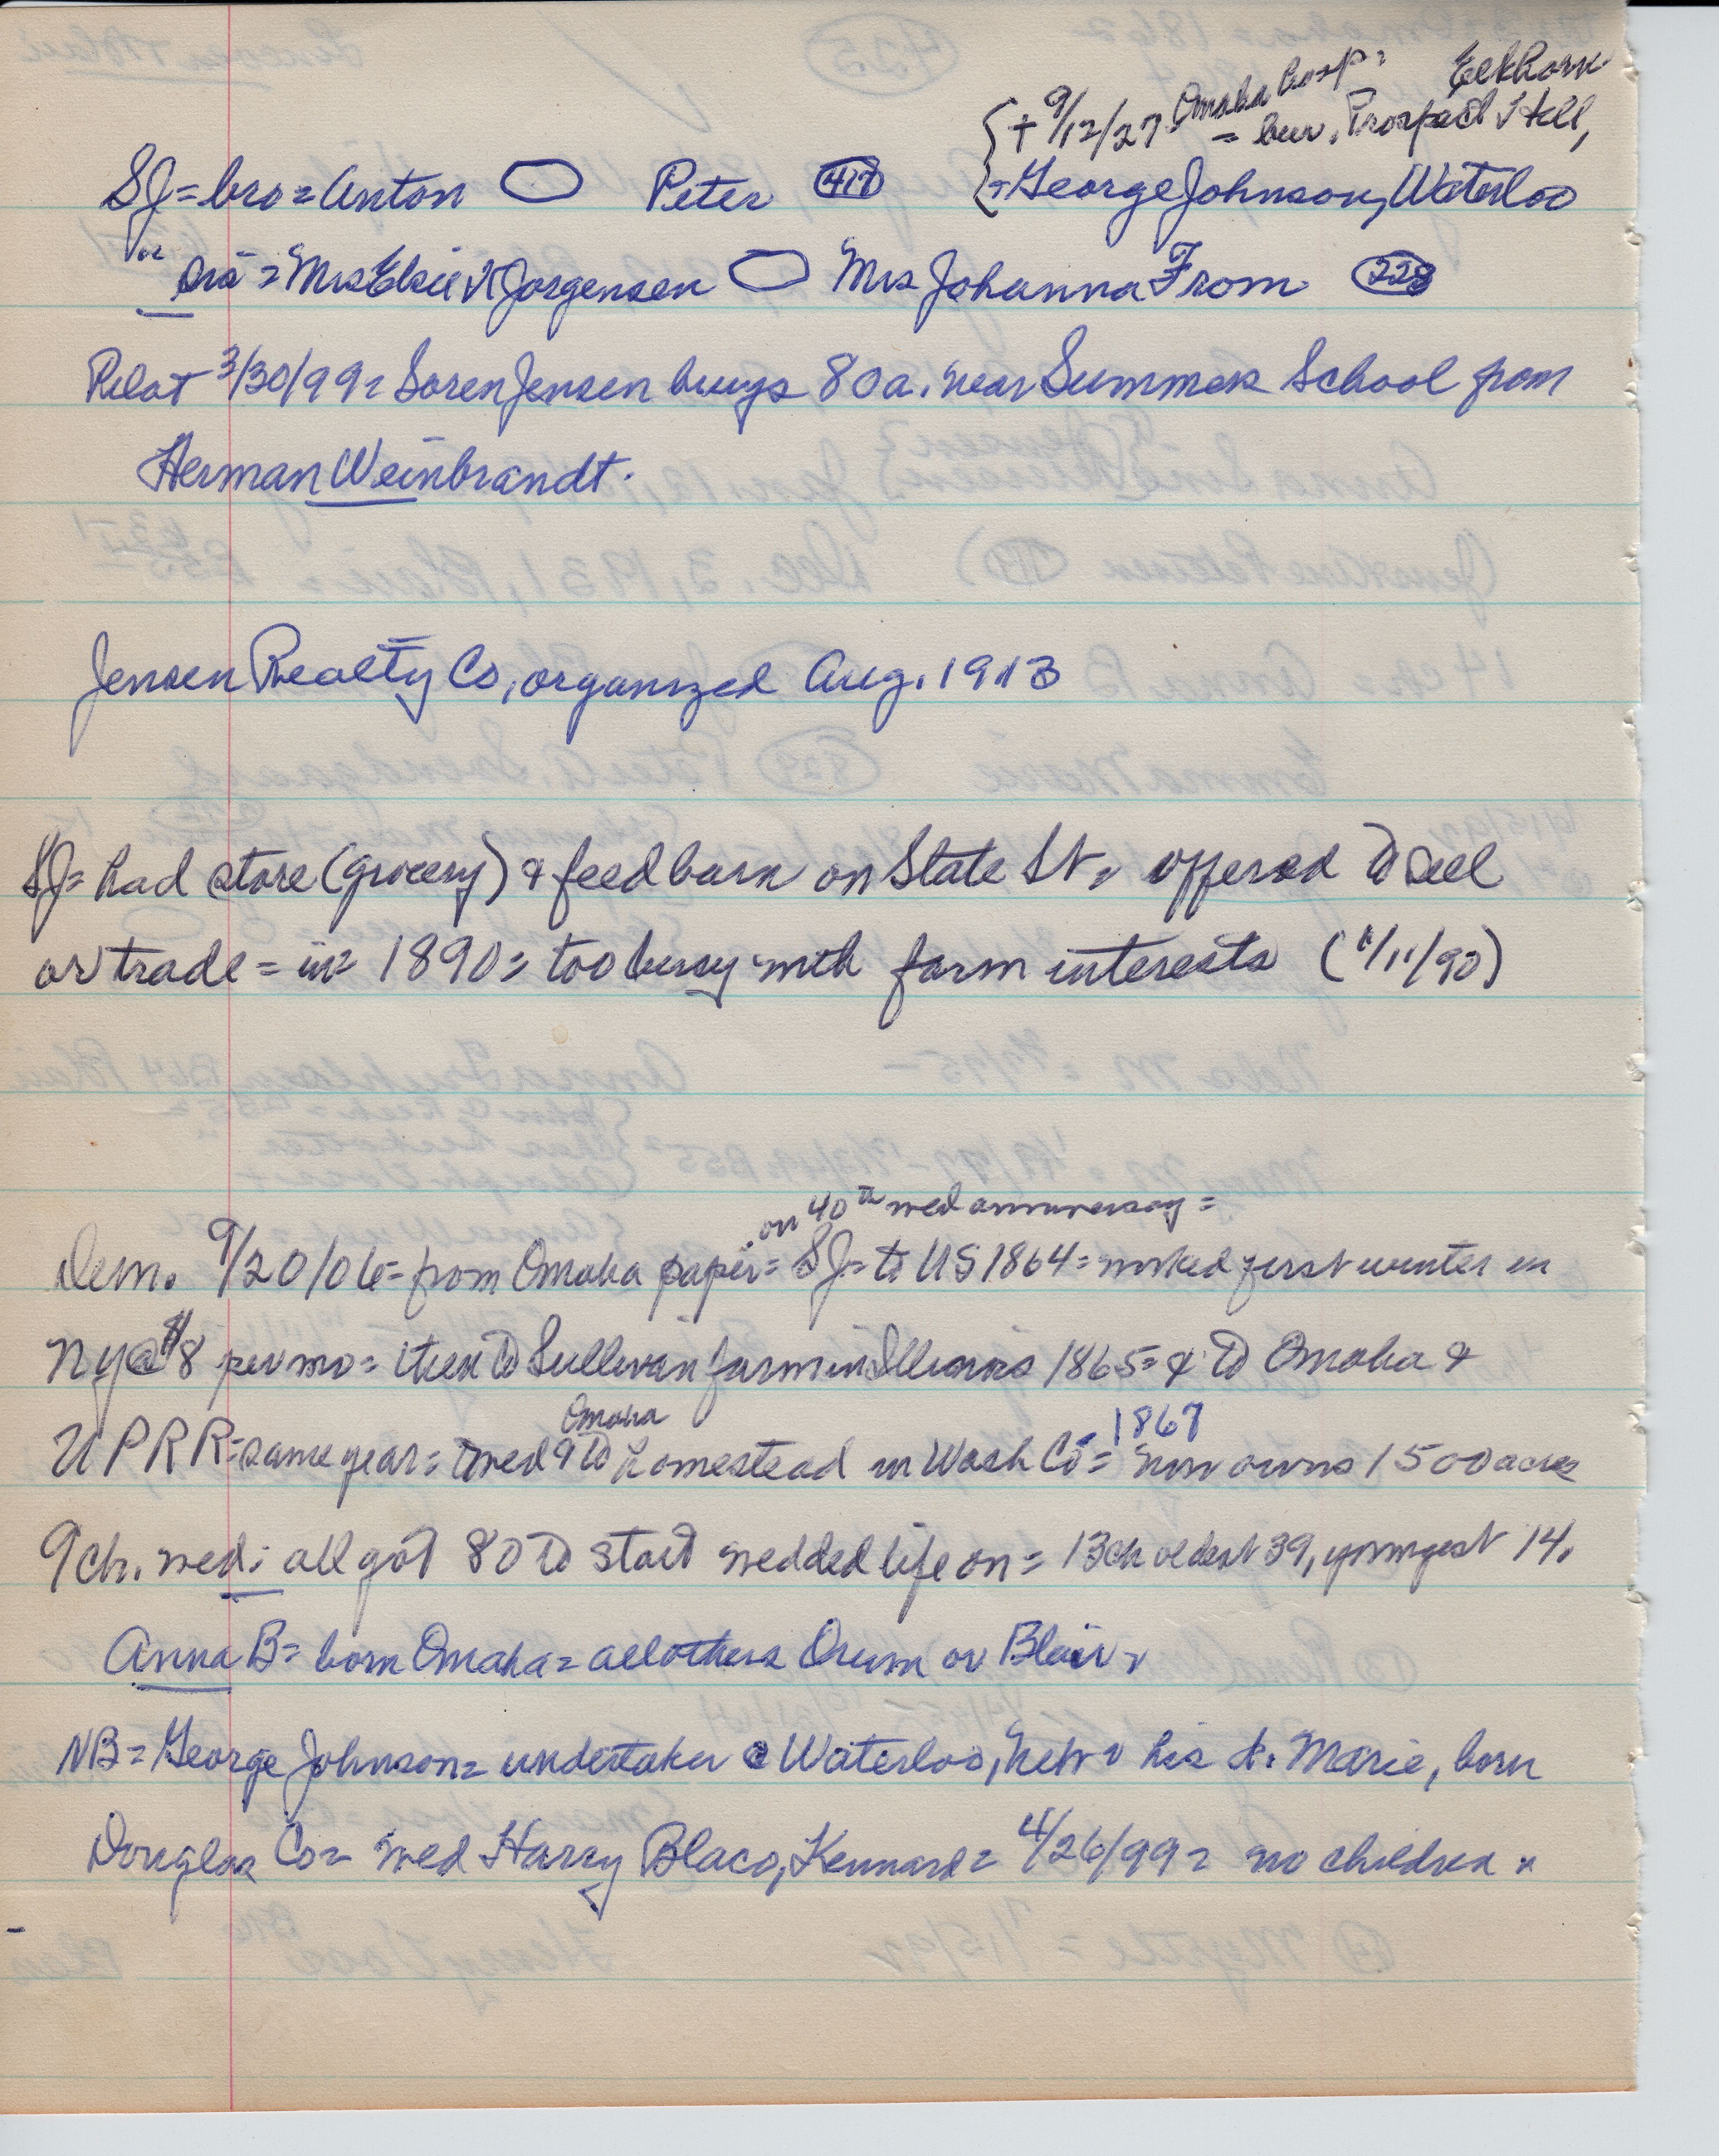 {+ 9/12/27 = Omaha hosp = Elkhorn
= bur. Prospect Hill,
SJ = bro = Anton Peter 417 = George Johnson, Waterloo
" sis = Mrs Elsie K Jorgensen Mrs Johanna From 228
Pilot 3/30/99 = Soren Jensen buys 80 a. near Summers School from
Herman Weinbrandt.
Jensen Realty Co, organized Aug. 1913
SJ = had store (grocery) & feed barn on State St, offered to sell
or trade = in 1890 = too busy with farm interests ( /11/90)
on 40th wed anniversary =
Dem. 9/20/06 = from Omaha paper = SJ = to US 1864 = worked first winter in
NY @ $8 per mo = then to Sullivan farm in Illinois 1865 = & to Omaha &
Omaha 1867
UPRR = same year = wed & to homestead in Wash Co = now owns 1500 acres
9 ch. wed: all got 80 to start wedded life on = 13 ch oldest 39, youngest 14.
Anna B = born Omaha = all others Orum or Blair =
NB = George Johnson = undertaker @ Waterloo, Neb = his d. Marie, born
Douglas Co = wed Harry Blaco, Kennard = 4/26/99 = no children